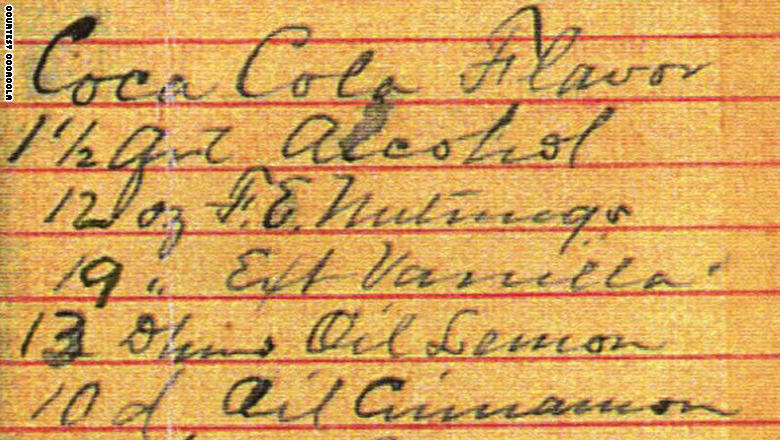 COURTESY COCACOLA
Coca Cola Flavor
1 1/2 Alcohol
12 oz F.E. Nutmegs
19 " Ext Vanilla
13 Oil Lemon
10 d Oil Cinnamon